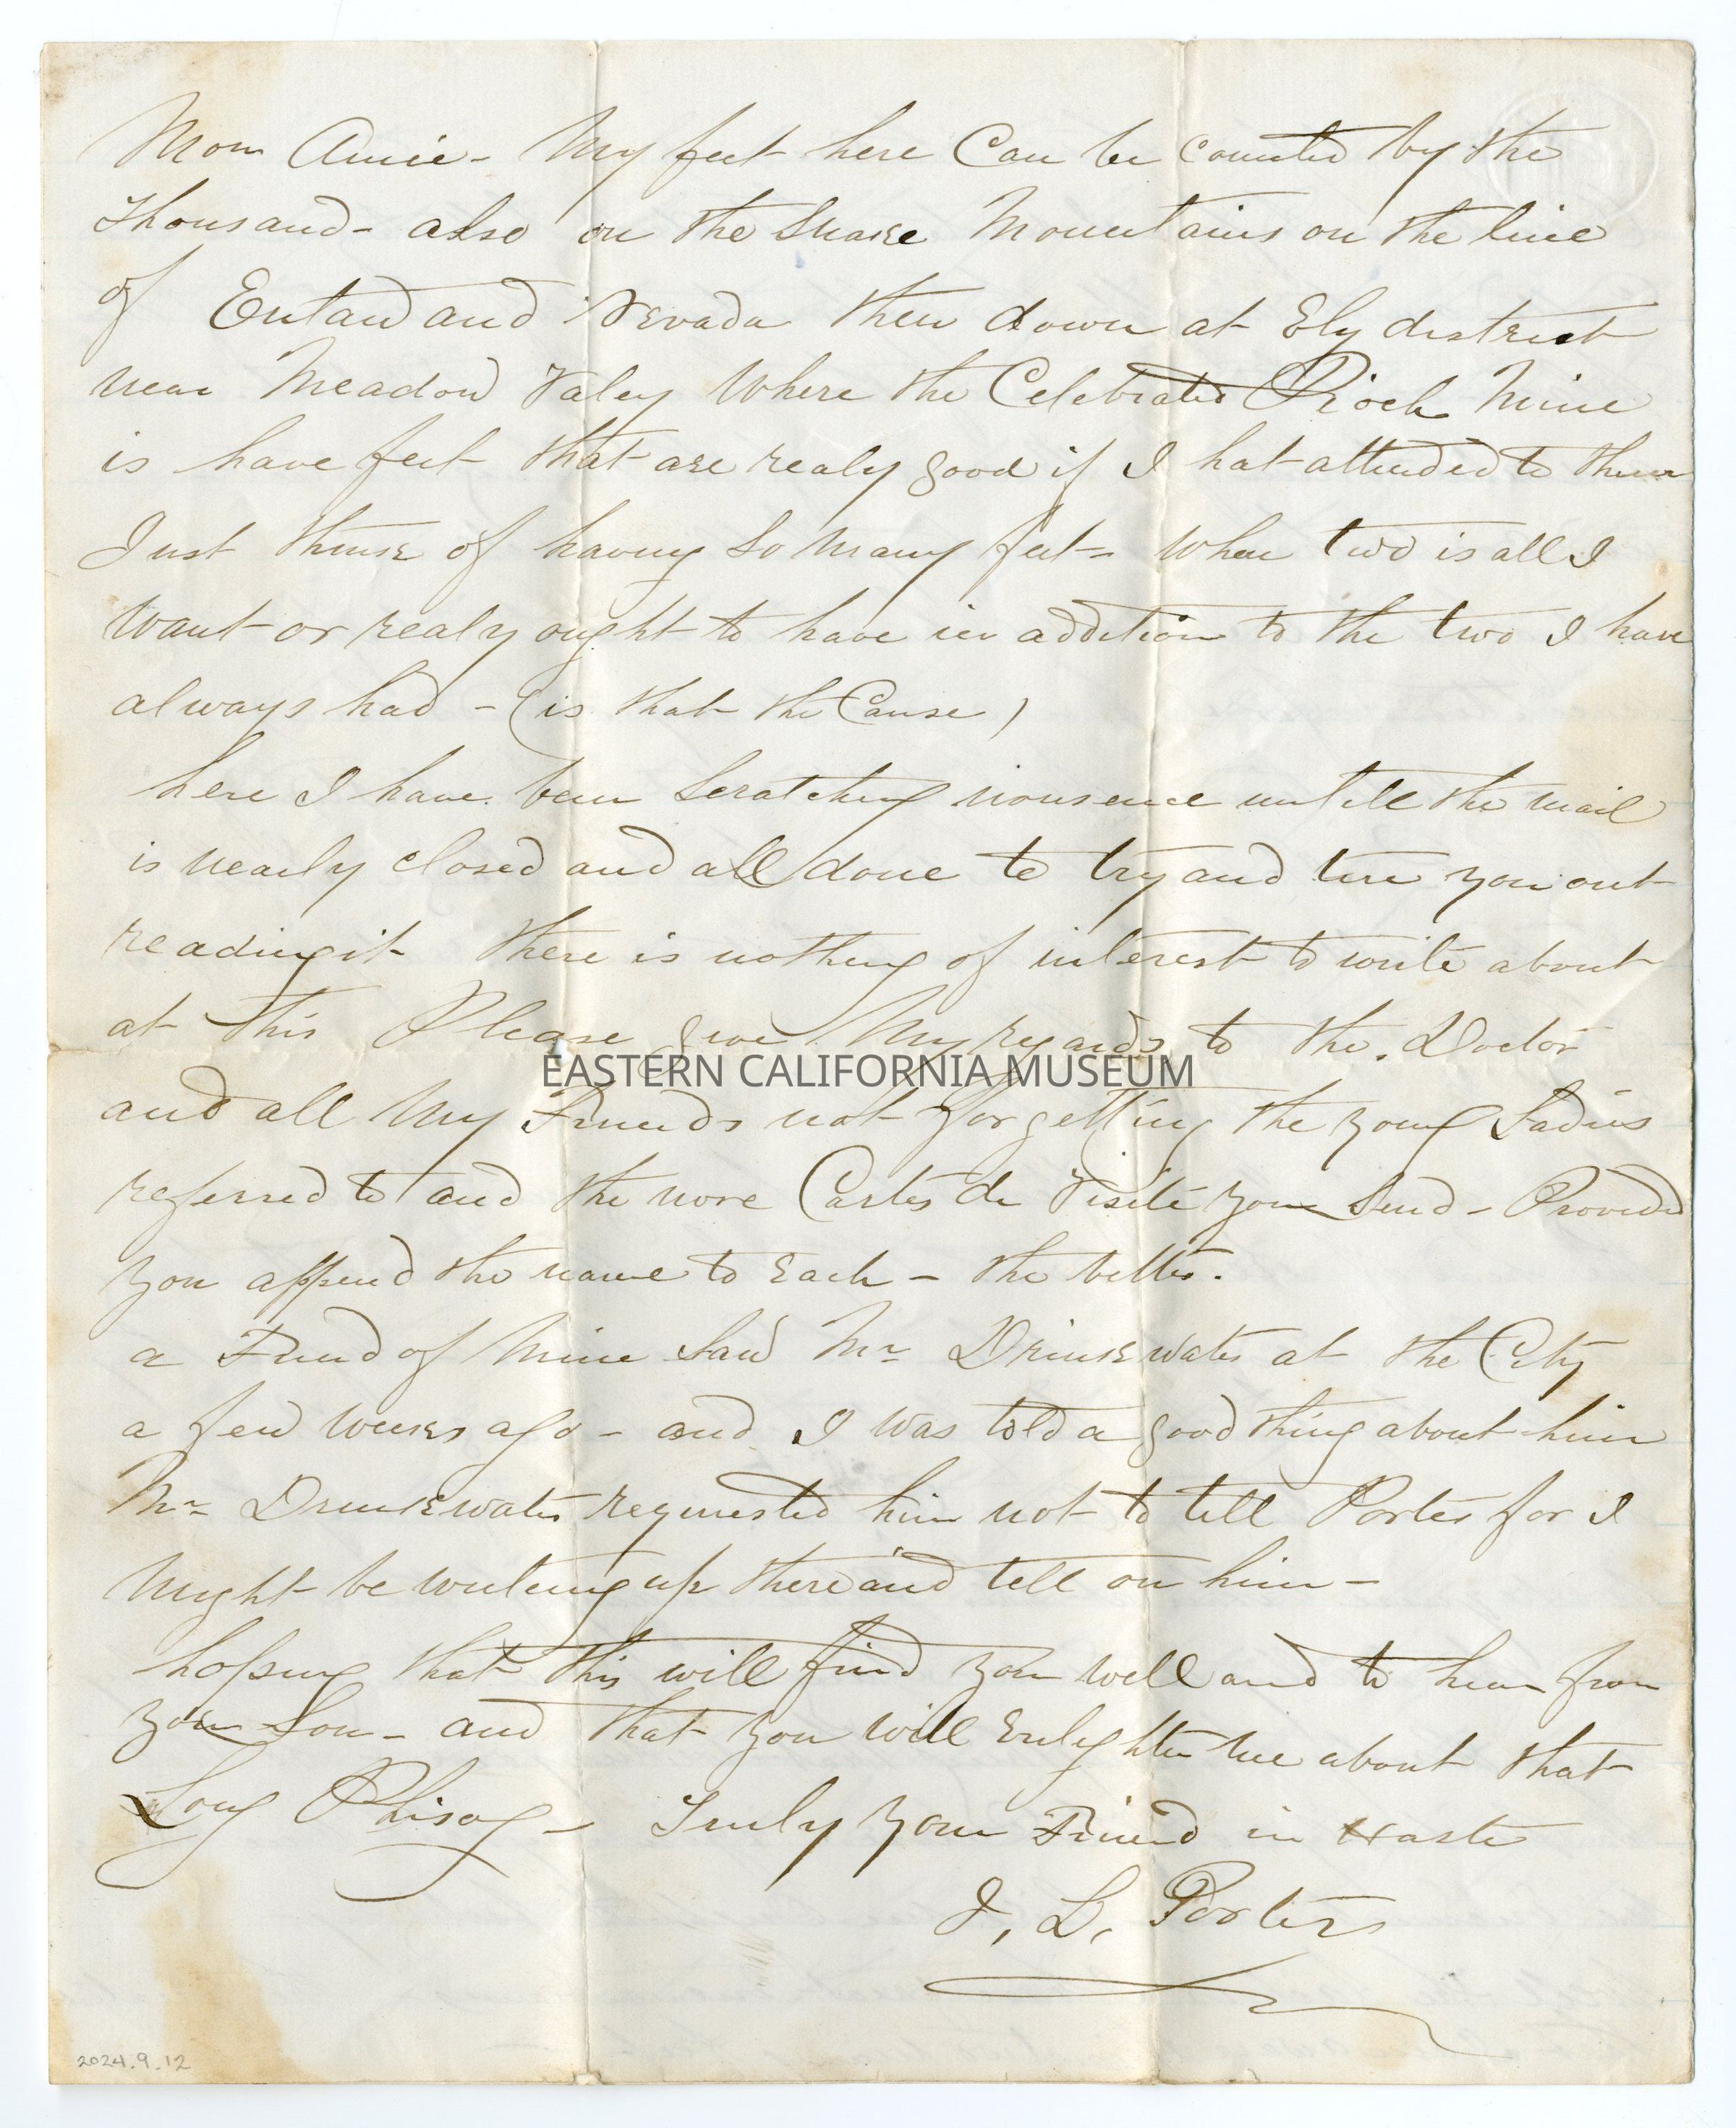 Mon Amie - My feet here Can be counted by the
thousand - also on the Snake Mountains on the line
of Eutaw and Nevada then down at Ely district
near Meadow Valey Where the Celebrated Pioch Mine
is have feet that are realy good if I hat attended to them
Just think of having So many feet - When two is all I
Want or realy ought to have in addition to the two I have
always had - (is that the Cause)
here I have been Scratching nonsence untill the mail
is nearly closed and all done to try and tire you out
reading it there is nothing of interest to write about
at this Please give My regards to the Doctor
EASTERN CALIFORNIA MUSEUM
and all My Friends not forgetting the young Ladies
referred to and the more Cartes de Visite you Send - Provided
you append the name to Each - the better.
a Friend of Mine Saw Mr Drinkwater at the City
a few weeks ago - and I was told a good thing about him
Mr Drinkwater requested him not to tell Porter for I
Might be writeing up there and tell on him -
hopeing that this will find you well and to hear from
you Soon - and that you will Enlighten me about that
Long Phisog - Truly your Friend in Haste
J, L, Porter
2024.9.12